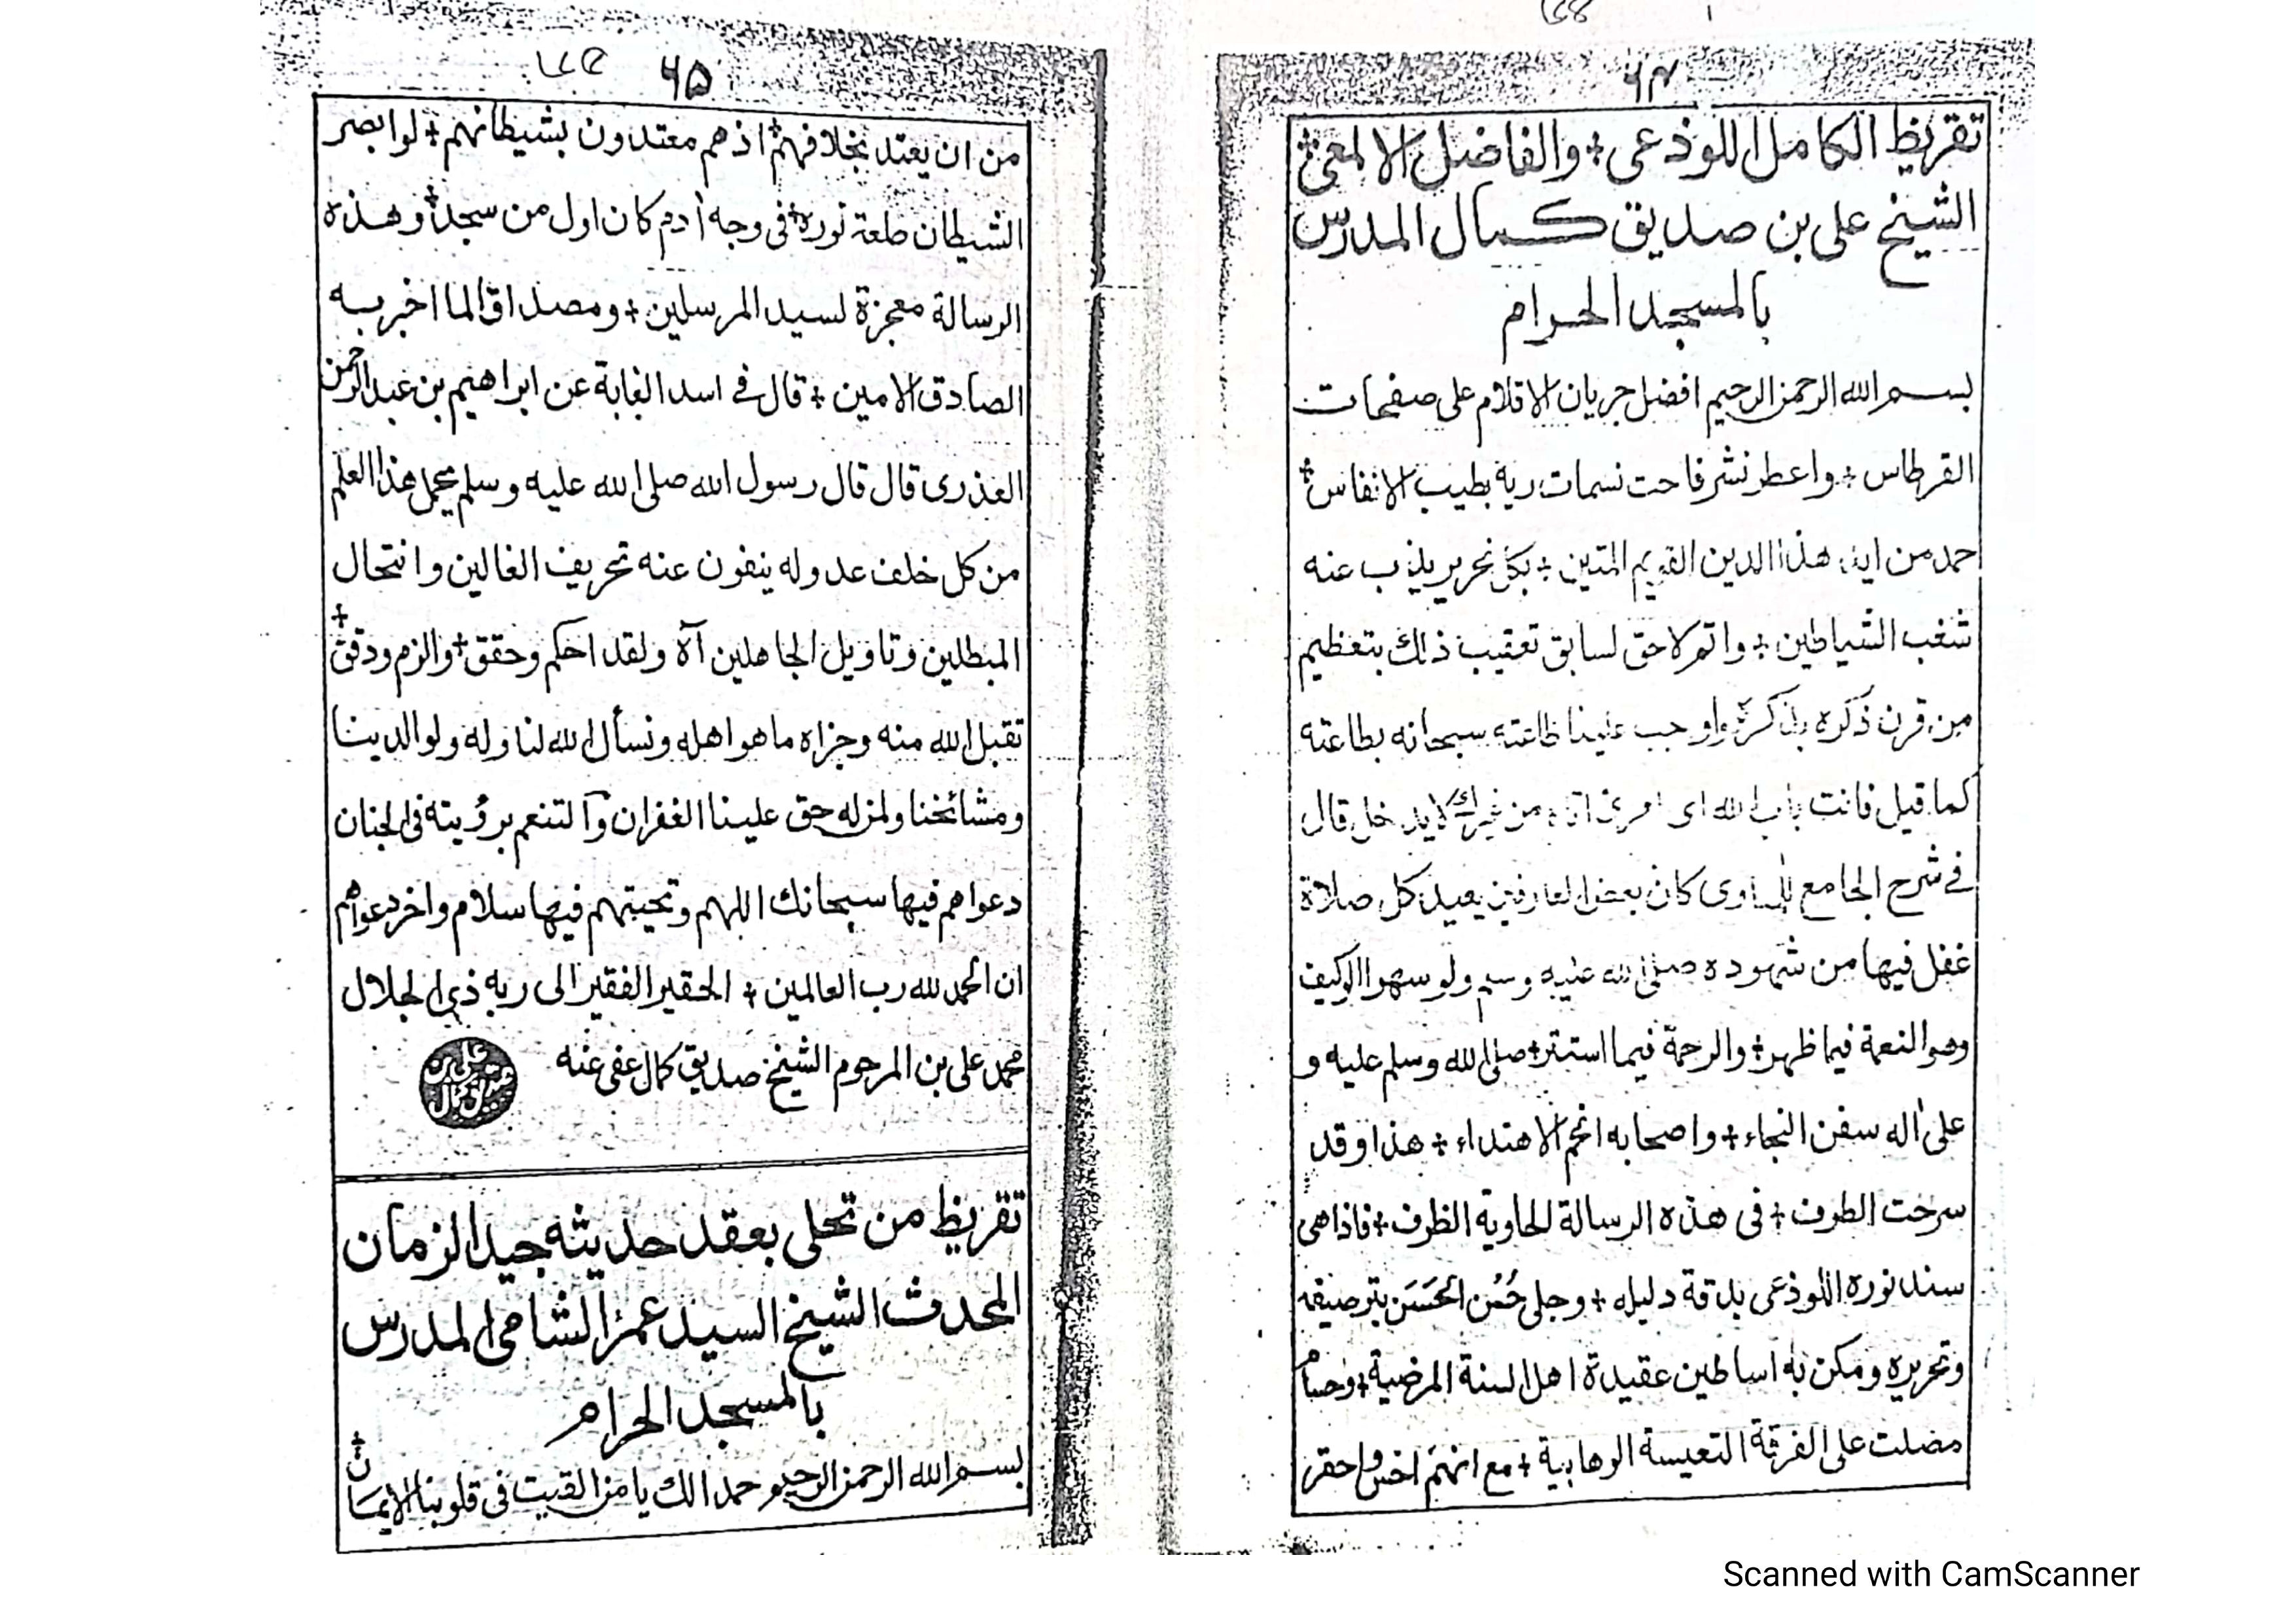 ٦٤
تقريظ الكامل اللوذعى + والفاضل الالمعى +
الشيخ على بن صديق كمال المدرس
بالمسجد الحرام
بسم الله الرحمن الرحيم افضل جريان الاقلام على صفحات
القرطاس + واعطر نشر فاحت نسمات ريه بطيب الانفاس +
حمد من ايد هذا الدين القويم المتين + بكل نحرير يذب عنه
شغب الشياطين + واتم لاحق لسابق تعقيب ذلك بتعظيم
من قرن ذكره بذكره واوجب علينا طاعته سبحانه بطاعته
كما قيل فانت باب الله اى امرئ اتاه من غيرك لا يدخل قال
فى شرح الجامع للمناوى كان بعض العارفين يعيد كل صلاة
غفل فيها من شهوده صلى الله عليه وسلم ولو سهوا كيف
وهو النعمة فيما ظهر + والرحمة فيما استتر + صلى الله وسلم عليه و
على اله سفن النجاء + واصحابه انجم الاهتداء + هذا وقد
سرحت الطرف + فى هذه الرسالة الحاوية الظرف + فاذا هى
سند نوره اللوذعى بدقة دليله + وجلى حُسْن الحَسَن بترصيفه
وتحريره ومكن به اساطين عقيدة اهل السنة المرضية + وحسام
مضلت على الفرقة التعيسة الوهابية + مع انهم اخس واحقر
٦٥
من ان يعتد بخلافهم + اذ هم معتدون بشيطانهم + لو ابصر
الشيطان طلعة نوره + فى وجه أدم كان اول من سجد + وهذه
الرسالة معجزة لسيد المرسلين + ومصداق لما اخبر به
الصادق الامين + قال فى اسد الغابة عن ابراهيم بن عبد الرحمن
العذرى قال قال رسول الله صلى الله عليه وسلم يحمل هذا العلم
من كل خلف عدوله ينفون عنه تحريف الغالين وانتحال
المبطلين وتاويل الجاهلين آه ولقد احكم وحقق + والزم ودقق +
تقبل الله منه وجزاه ما هو اهله ونسأل الله لنا وله ولوالدينا
ومشائخنا ولمن له حق علينا الغفران والتنعم برؤيته فى الجنان
دعواهم فيها سبحانك اللهم وتحيتهم فيها سلام واخر دعواهم
ان الحمد لله رب العالمين + الحقير الفقير الى ربه ذى الجلال
محمد على بن المرحوم الشيخ صديق كمال عفى عنه
على بن صديق كمال
تقريظ من تحلى بعقد حديثه جيد الزمان
المحدث الشيخ السيد عمر الشامى المدرس
بالمسجد الحرام
بسم الله الرحمن الرحيم حمدا لك يا من القيت فى قلوبنا الايمان +
Scanned with CamScanner